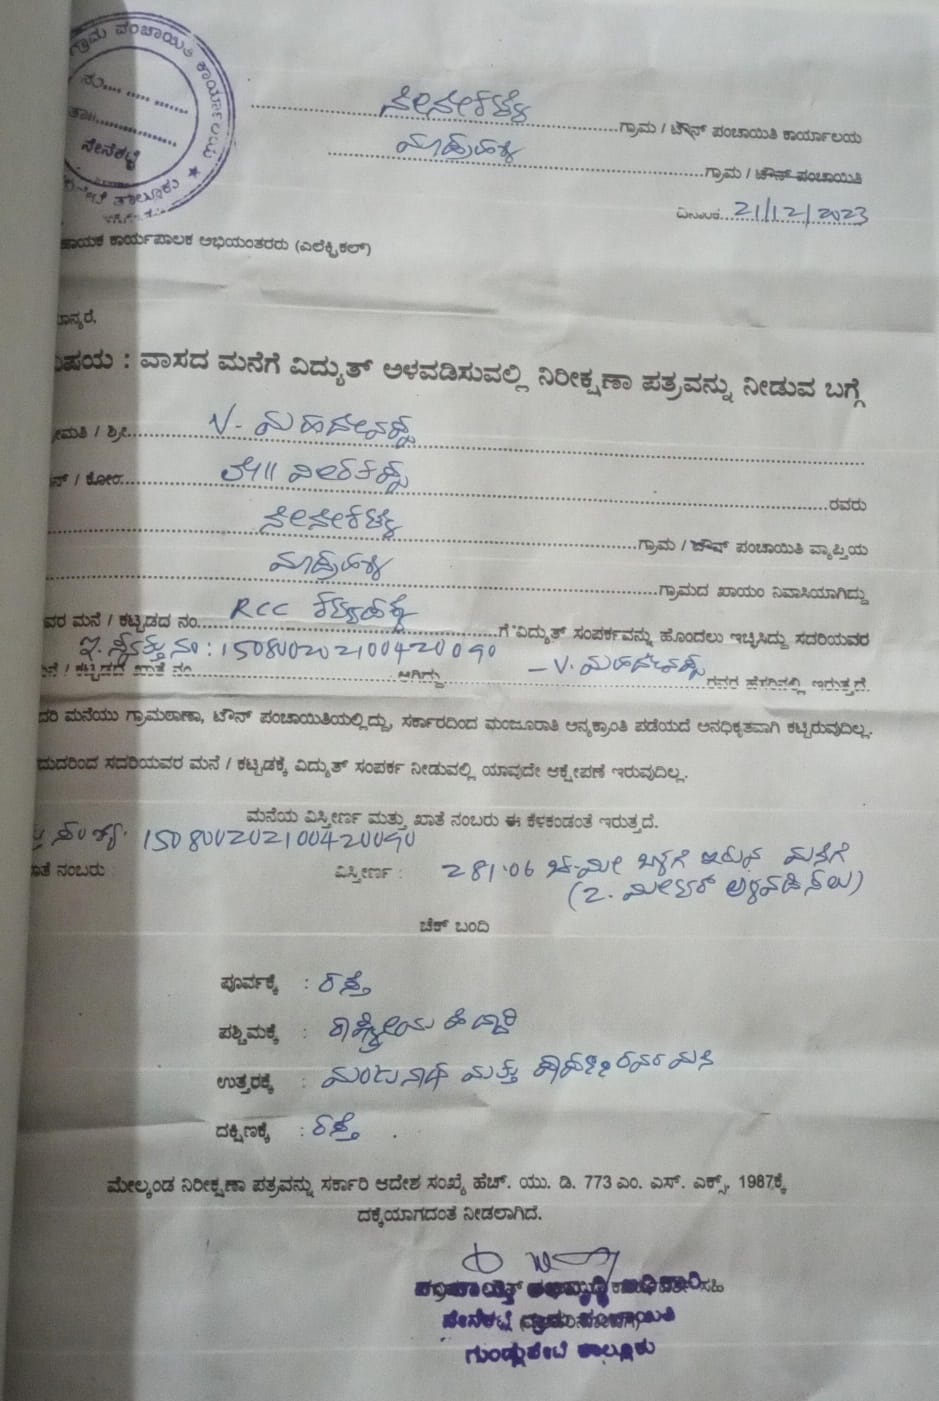 ಗ್ರಾಮ ಪಂಚಾಯಿತಿ ಕಾರ್ಯಾಲಯ
ನೇನೇಕಟ್ಟೆ ಗ್ರಾಮ / ಟೌನ್ ಪಂಚಾಯಿತಿ ಕಾರ್ಯಾಲಯ
ನೇನೆಕಟ್ಟೆ
ತಾಲ್ಲೂಕು
ಗ್ರಾಮ / ಟೌನ್ ಪಂಚಾಯಿತಿ
ದಿನಾಂಕ 21/12/2023
ಕಾರ್ಯಪಾಲಕ ಅಭಿಯಂತರರು (ಎಲೆಕ್ಟ್ರಿಕಲ್)
ವಾಸದ ಮನೆಗೆ ವಿದ್ಯುತ್ ಅಳವಡಿಸುವಲ್ಲಿ ನಿರೀಕ್ಷಣಾ ಪತ್ರವನ್ನು ನೀಡುವ ಬಗ್ಗೆ
/ ಶ್ರೀ V. ಮಹದೇವಪ್ಪ
/ ಕೋಂ ರವರು
ನೇನೇಕಟ್ಟೆ ಗ್ರಾಮ / ಟೌನ್ ಪಂಚಾಯಿತಿ ವ್ಯಾಪ್ತಿಯ
ಗ್ರಾಮದ ಖಾಯಂ ನಿವಾಸಿಯಾಗಿದ್ದು
ವರ ಮನೆ / ಕಟ್ಟಡದ ನಂ. RCC ಗೆ ವಿದ್ಯುತ್ ಸಂಪರ್ಕವನ್ನು ಹೊಂದಲು ಇಚ್ಛಿಸಿದ್ದು ಸದರಿಯವರ
ಇ. ಸ್ವತ್ತು ನಂ : 150800202100420090 - V. ಮಹದೇವಪ್ಪ
/ ಕಟ್ಟಡದ ಖಾತೆ ನಂ. ಆಗಿದ್ದು ರವರ ಹೆಸರಿನಲ್ಲಿ ಇರುತ್ತದೆ.
ಮನೆಯು ಗ್ರಾಮಠಾಣಾ, ಟೌನ್ ಪಂಚಾಯಿತಿಯಲ್ಲಿದ್ದು, ಸರ್ಕಾರದಿಂದ ಮಂಜೂರಾತಿ ಅನ್ಯಕ್ರಾಂತಿ ಪಡೆಯದೆ ಅನಧಿಕೃತವಾಗಿ ಕಟ್ಟಿರುವುದಿಲ್ಲ.
ದುದರಿಂದ ಸದರಿಯವರ ಮನೆ / ಕಟ್ಟಡಕ್ಕೆ ವಿದ್ಯುತ್ ಸಂಪರ್ಕ ನೀಡುವಲ್ಲಿ ಯಾವುದೇ ಆಕ್ಷೇಪಣೆ ಇರುವುದಿಲ್ಲ.
ಮನೆಯ ವಿಸ್ತೀರ್ಣ ಮತ್ತು ಖಾತೆ ನಂಬರು ಈ ಕೆಳಕಂಡಂತೆ ಇರುತ್ತದೆ.
150800202100420090
ನಂಬರು : ವಿಸ್ತೀರ್ಣ : 281.06 ಚ.ಮೀ ಒಳಗೆ ಇರುವ ಮನೆಗೆ
(2. ಮೀಟರ್ ಅಳವಡಿಸಲು)
ಚೆಕ್ ಬಂದಿ
ಪೂರ್ವಕ್ಕೆ : ರಸ್ತೆ
ಪಶ್ಚಿಮಕ್ಕೆ : ರಾಷ್ಟ್ರೀಯ ಹೆದ್ದಾರಿ
ಉತ್ತರಕ್ಕೆ : ಮಂಜುನಾಥ ಮತ್ತು ರವರ ಮನೆ
ದಕ್ಷಿಣಕ್ಕೆ : ರಸ್ತೆ .
ಮೇಲ್ಕಂಡ ನಿರೀಕ್ಷಣಾ ಪತ್ರವನ್ನು ಸರ್ಕಾರಿ ಆದೇಶ ಸಂಖ್ಯೆ ಹೆಚ್. ಯು. ಡಿ. 773 ಎಂ. ಎಸ್. ಎಕ್ಸ್. 1987ಕ್ಕೆ
ದಕ್ಕೆಯಾಗದಂತೆ ನೀಡಲಾಗಿದೆ.
ಪಂಚಾಯತ್ ಅಭಿವೃದ್ಧಿ ಅಧಿಕಾರಿ ಸಹಿ
ನೇನೆಕಟ್ಟೆ ಗ್ರಾಮ ಪಂಚಾಯಿತಿ
ಗುಂಡ್ಲುಪೇಟೆ ತಾಲ್ಲೂಕು